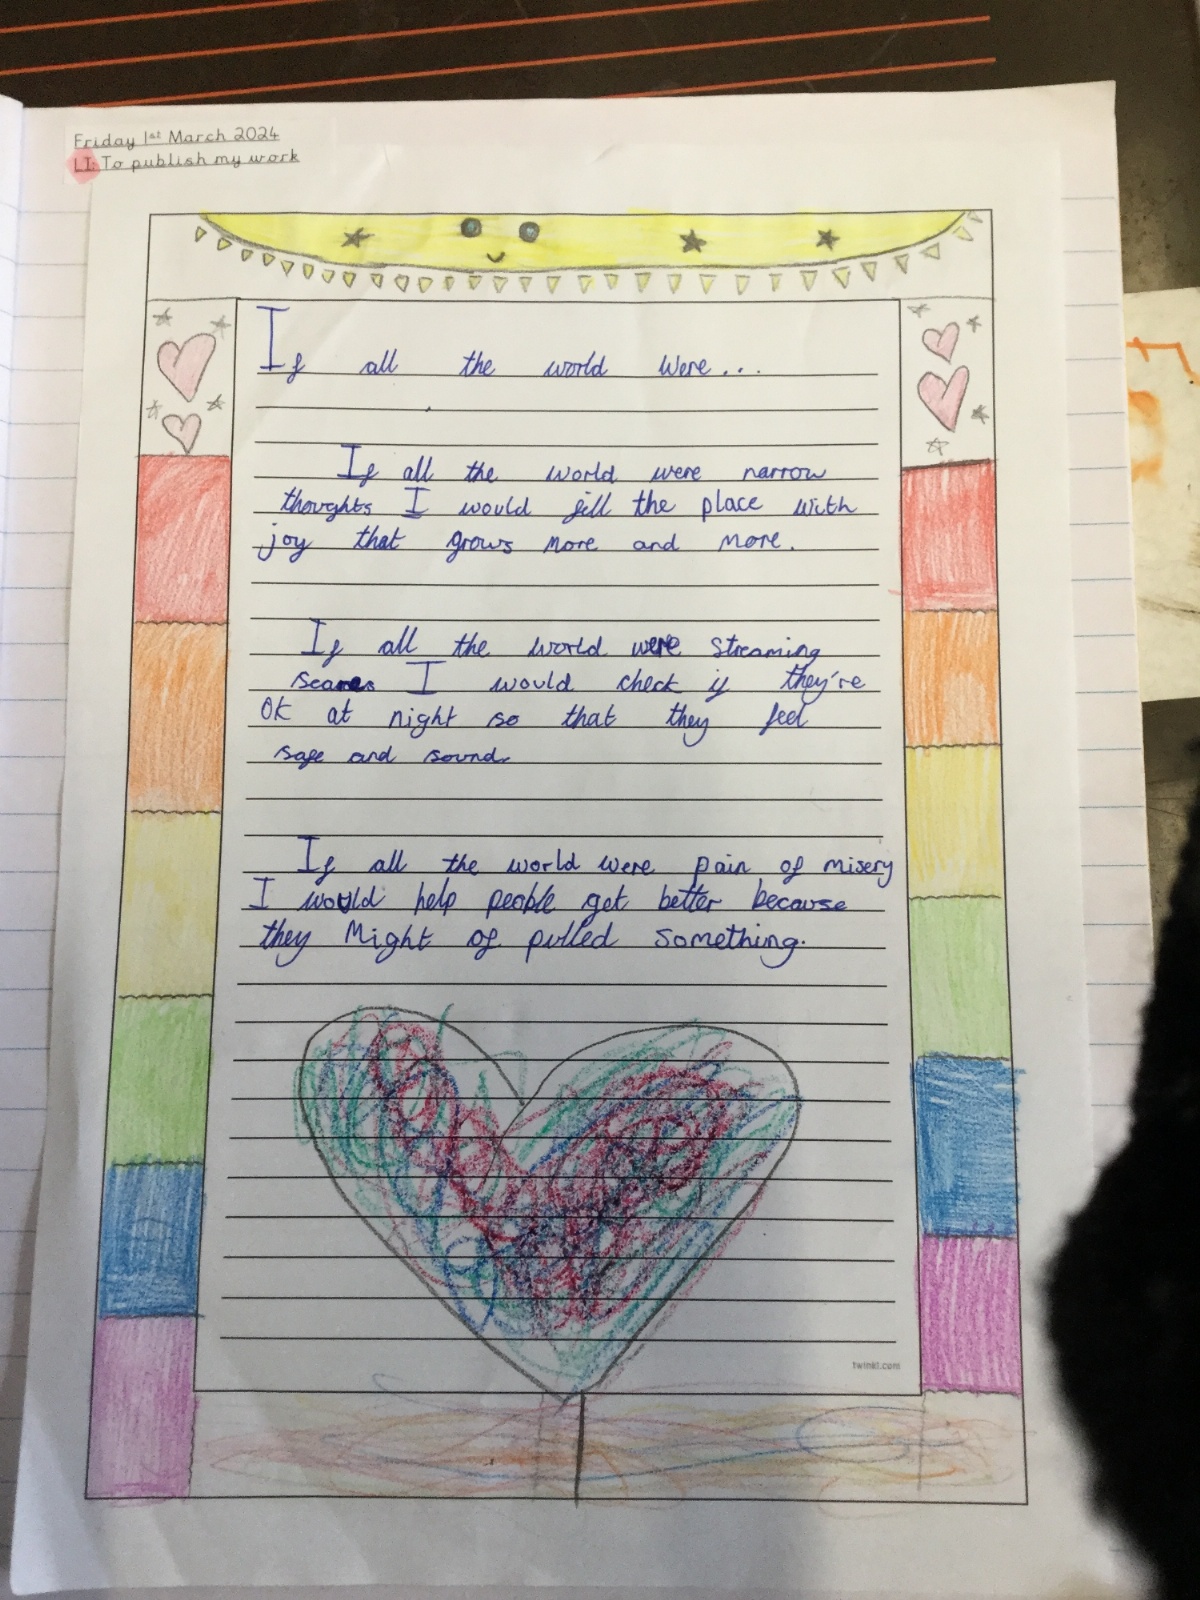 Friday 1st March 2024
LI: To publish my work
If all the world were...
If all the world were narrow
thoughts I would fill the place with
joy that grows more and more.
If all the world were streaming
scares I would check if they're
OK at night so that they feel
safe and sound
If all the world were pain of misery
I would help people get better because
they Might of pulled something.
twinkl.com